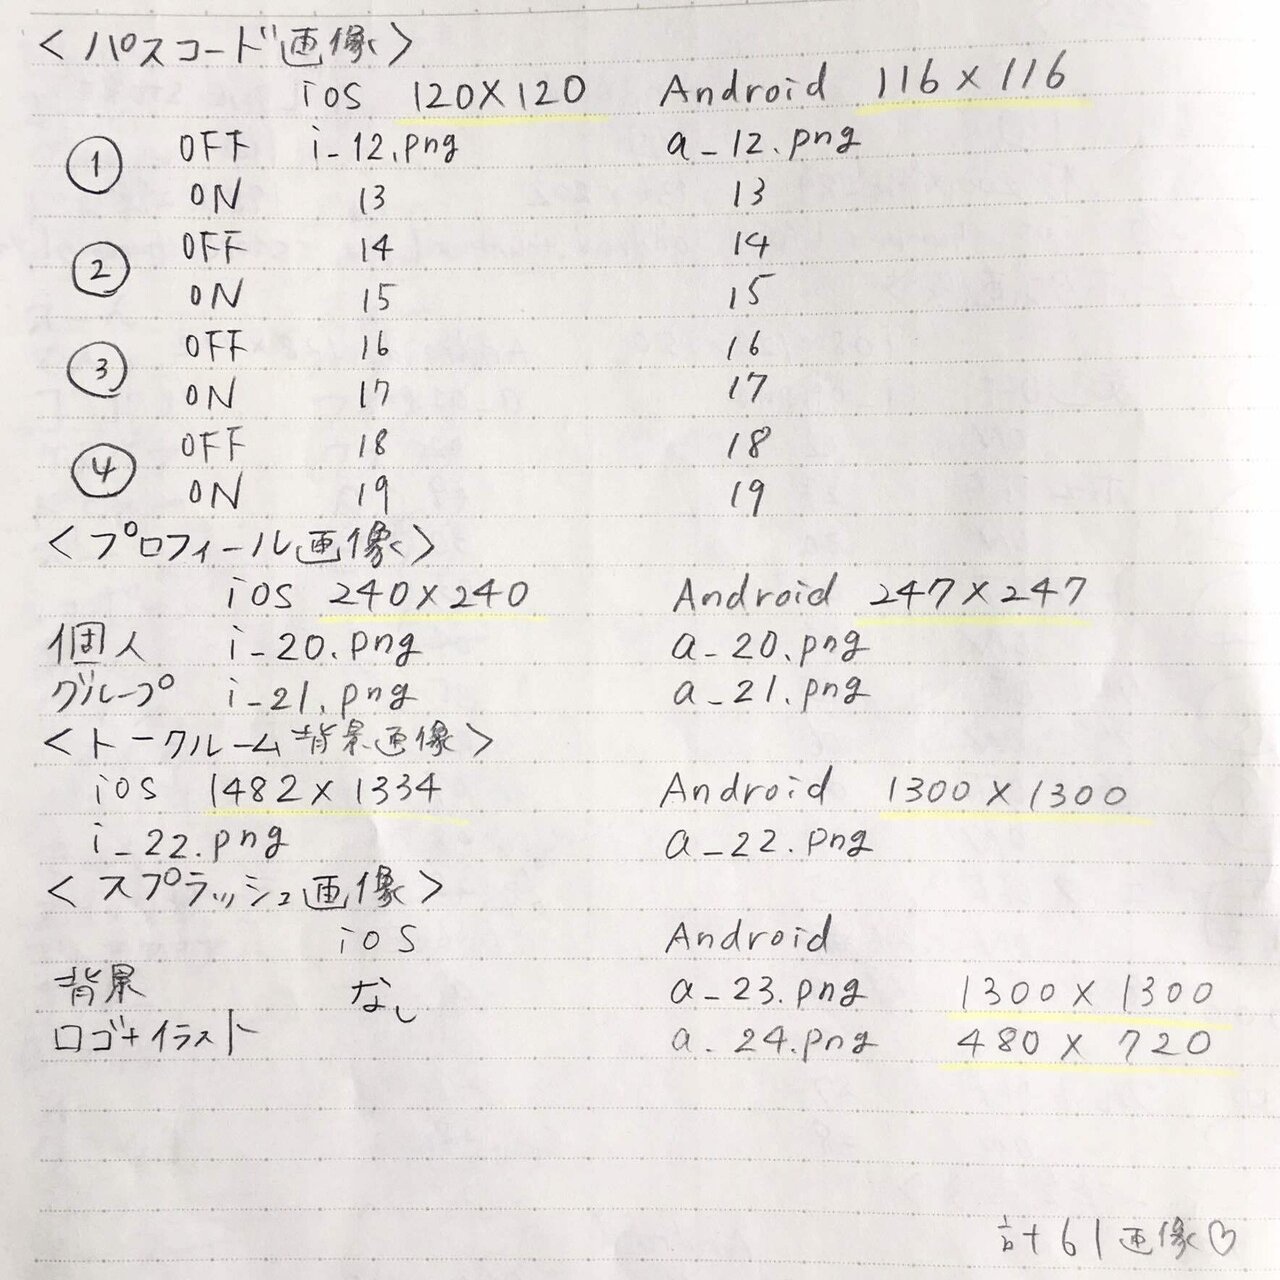 <パスコード画像>
iOS 120×120 Android 116×116
① OFF i_12.png a_12.png
ON 13 13
② OFF 14 14
ON 15 15
③ OFF 16 16
ON 17 17
④ OFF 18 18
ON 19 19
<プロフィール画像>
iOS 240×240 Android 247×247
個人 i_20.png a_20.png
グループ i_21.png a_21.png
<トークルーム背景画像>
iOS 1482×1334 Android 1300×1300
i_22.png a_22.png
<スプラッシュ画像>
iOS Android
背景 なし a_23.png 1300×1300
ロゴ+イラスト a_24.png 480×720
計61画像♡